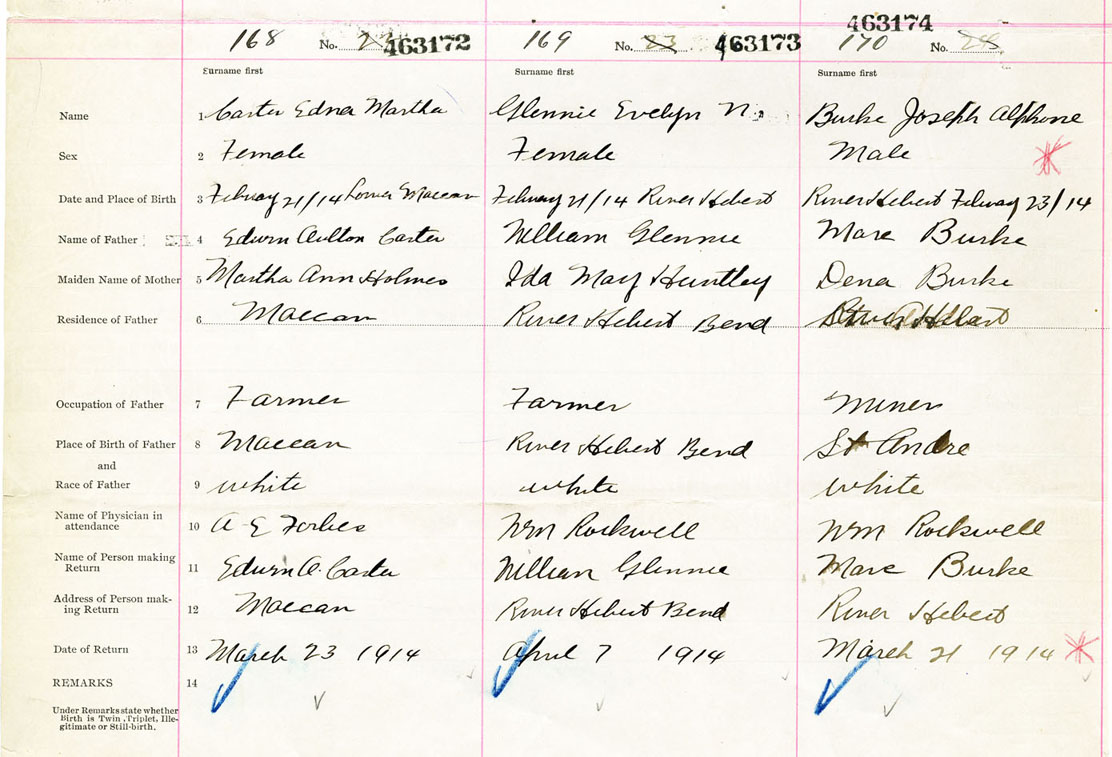 463174
168 No. 463172 169 No. 23 463173 170 No. 24
Surname first Surname first Surname first
Name 1 Carter Edna Martha Glennie Evelyn N. Burke Joseph Alphone
Sex 2 Female Female Male
Date and Place of Birth 3 Febuary 21/14 Lower Maccan Febuary 21/14 River Hebert River Hebert Febuary 23/14
Name of Father 4 Edwin Carter William Glennie Marc Burke
Maiden Name of Mother 5 Martha Ann Holmes Ida May Huntley Dena Burke
Residence of Father 6 Maccan River Hebert Bend
Occupation of Father 7 Farmer Farmer Miner
Place of Birth of Father 8 Maccan River Hebert Bend St Andre
and
Race of Father 9 white white white
Name of Physician in
attendance 10 A E Forbes Wm Rockwell Wm Rockwell
Name of Person making
Return 11 Edwin A. Carter William Glennie Marc Burke
Address of Person mak-
ing Return 12 Maccan River Hebert Bend River Hebert
Date of Return 13 March 23 1914 April 7 1914 March 21 1914
REMARKS 14
Under Remarks state whether
Birth is Twin, Triplet, Ille-
gitimate or Still-birth.